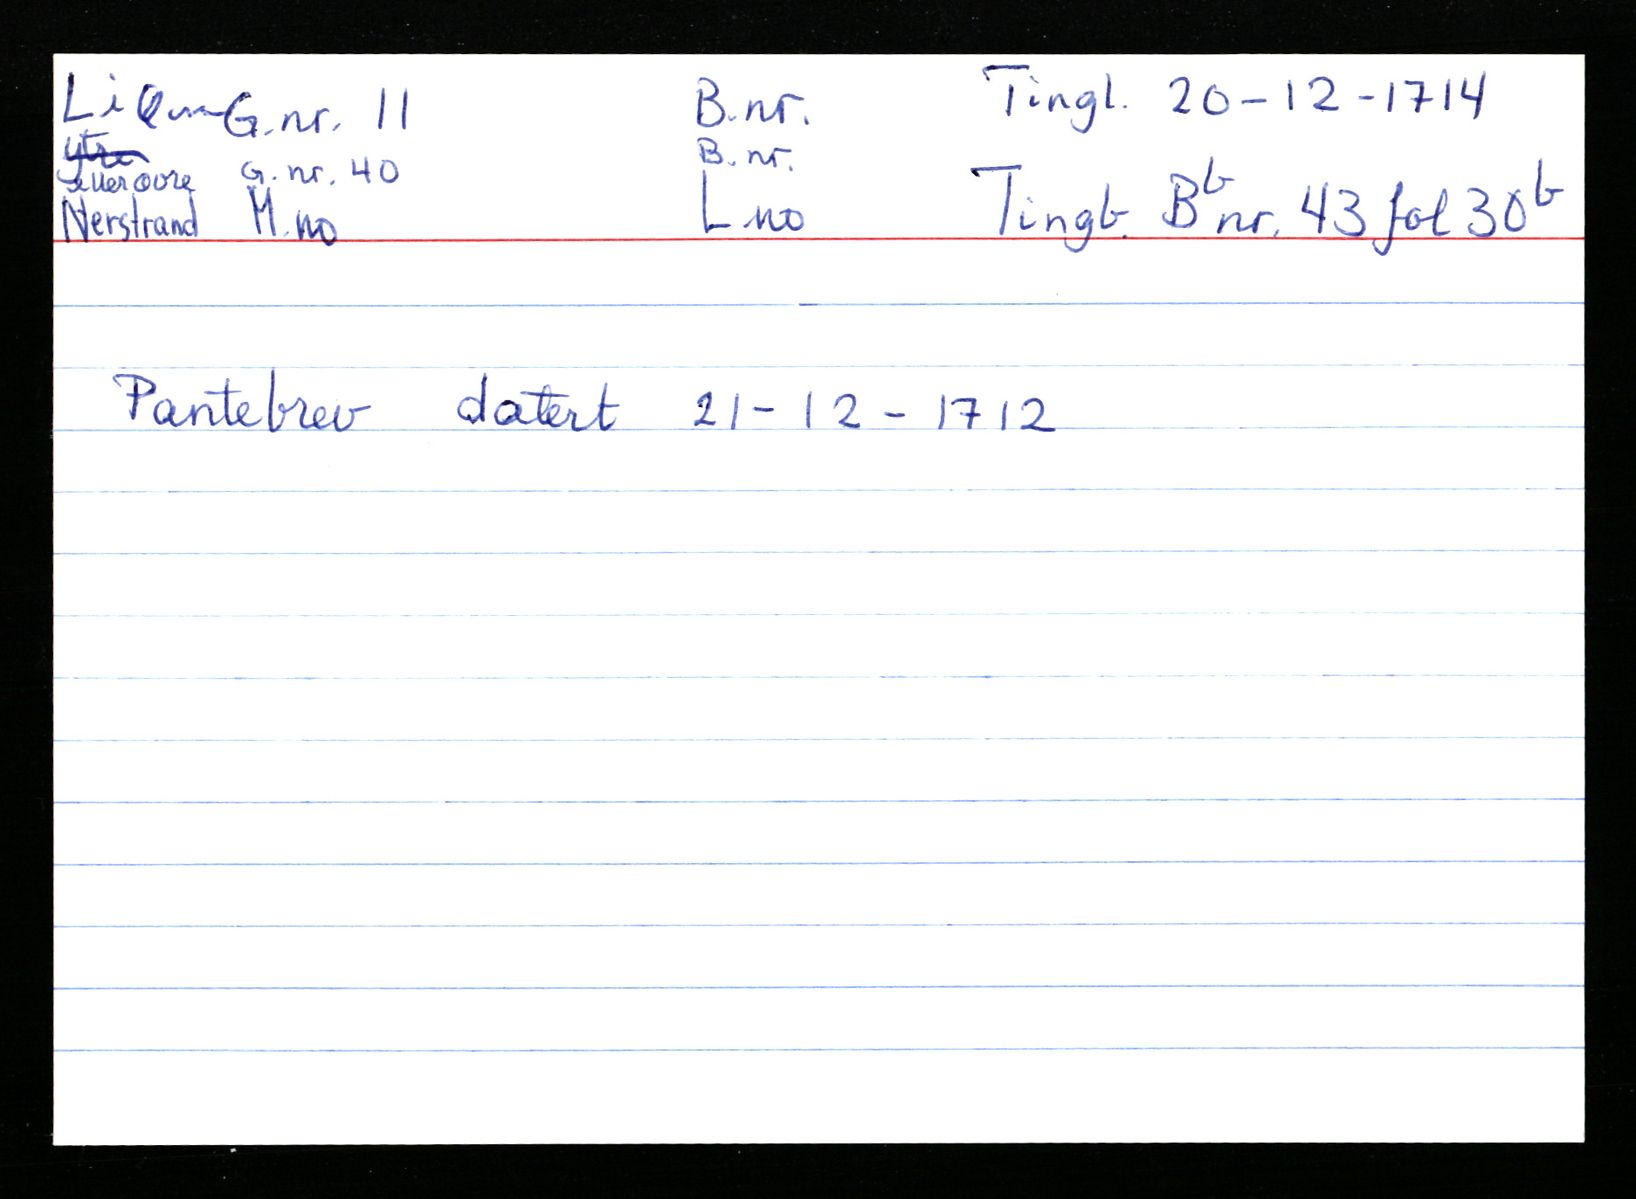 Li G.nr. 11 B.nr. Tingl. 20-12-1714
ytre B.nr.
øvre G.nr. 40
Nerstrand M.no L.no Tingb. Bb nr. 43 fol 30b
Pantebrev datert 21-12-1712